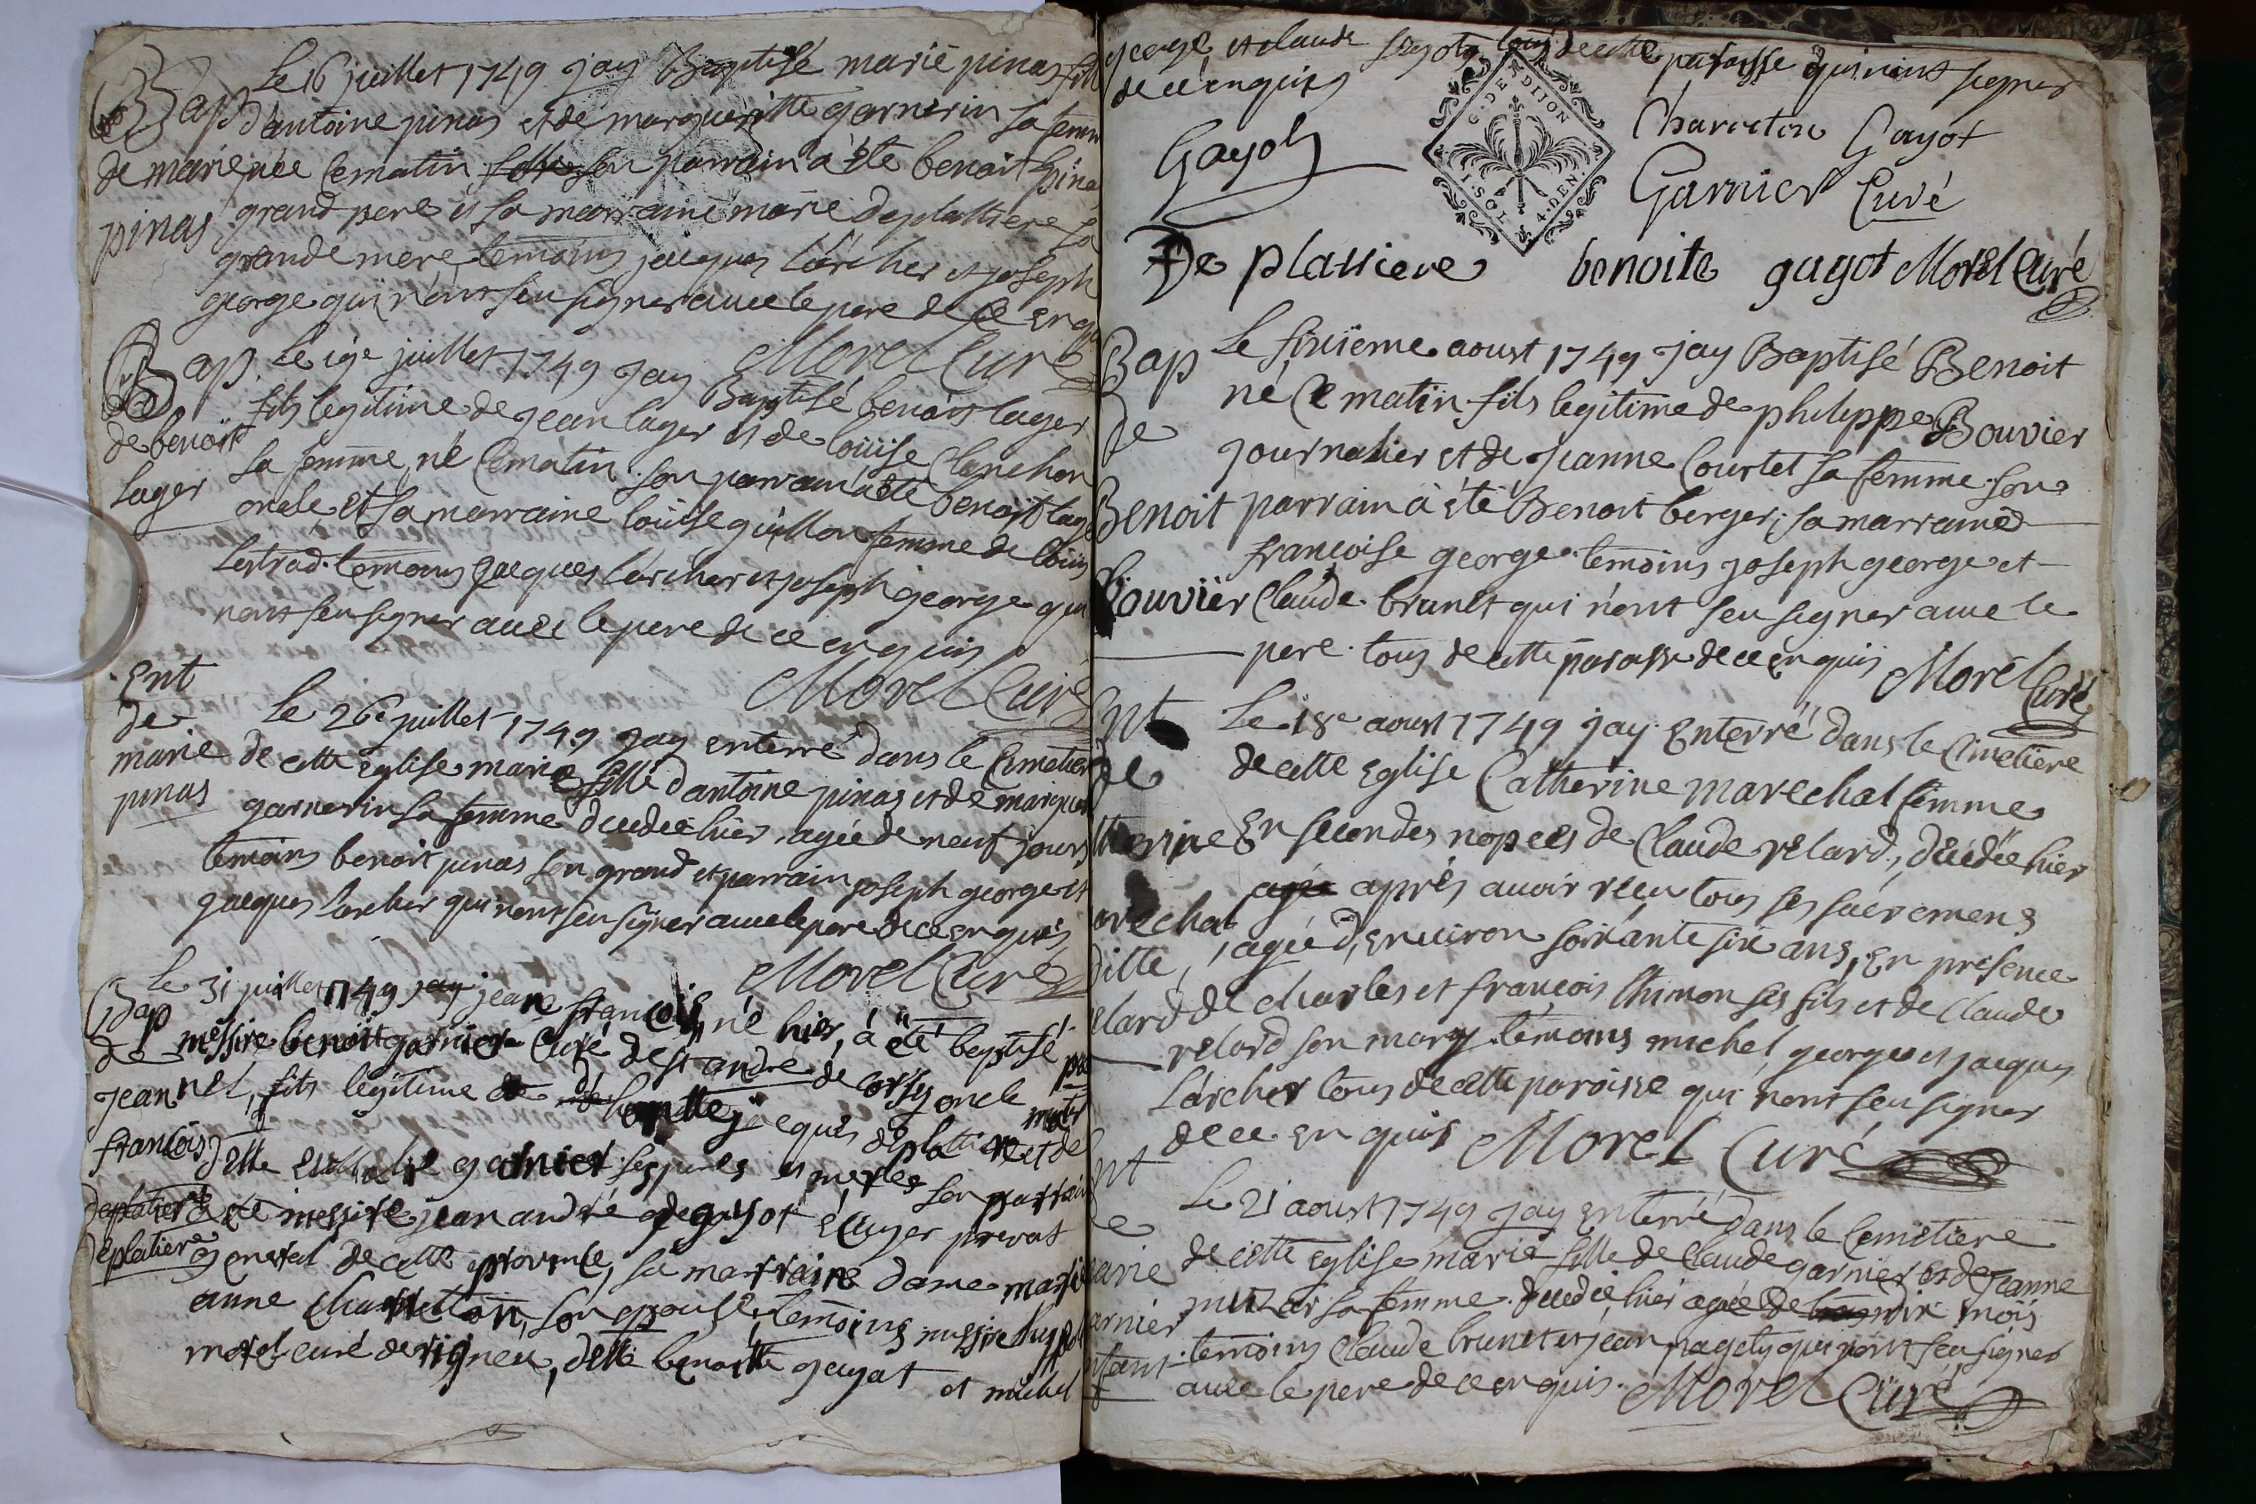 Bap
de marie
pinas
Le 16 juillet 1749 jay Baptisé marie pinas fille
d'antoine pinas et de margueritte garnerin sa femme
née ce matin son parrain a été benoit pinas
grand pere et sa marraine marie deplattiere sa
grande mere, temoins jacques l'archer et joseph
george qui n'ont seu signer avec le pere de ce enquis
Morel Curé
Bap
de benoit
lager
Le 19e juillet 1749 jay Baptisé benoit lager
fils legitime de jean lager et de loüise Clanchon
sa femme, né ce matin. son parrain a été benoit lager
oncle et sa marraine loüise guillon femme de loüis
lestrad. temoins jacques l'archer et joseph george qui
n'ont seu signer avec le pere de ce enquis
Morel Curé
Ent
de
marie
pinas
Le 26e juillet 1749 jay enterré dans le Cimetier
de cette Eglise marie fille d'antoine pinas et de marguer
garnerin sa femme decedée hier agée de neuf jours
temoins benoit pinas son grand et parrain joseph george et
jacques l'archer qui n'ont seu signer avec le pere de ce enquis
Morel Curé
Bap
de
jean
françois
deplatiere
Le 31 juillet 1749 jean françois, né hier, à été baptisé par
messire benoit garnier Curé de st andré de corsy oncle
nel, fils legitime de jaques deplatiere et de
delle garnier ses peres et meres son parrain
a été messire jean andré gayot Ecuyer prevot
general de cette province, sa marraine dame marie
anne Charreton, son epouse, temoins messire
morel curé de rigneu, delle benoitte gayot et michel
george et claude tous de cette paroisse qui n'ont signer
de ce enquis
Gayot
Charreton Gayot
Garnier Curé
G. DE DIJON
1. SOL 4. DEN.
De plattiere benoite gayot Morel Curé
Bap
de
Benoit
Bouvier
Le sixieme aoust 1749 jay Baptisé Benoit
né Ce matin fils legitime de philippe Bouvier
journalier et de jeanne Courtet sa femme. son
parrain à été Benoit berger, sa marraine
françoise george. temoins joseph george et
Claude brunet qui n'ont seu signer avec le
pere. tous de cette paroisse de ce enquis
Morel Curé
Ent
de
Catherine
marechal
ditte
relard
Le 18e aoust 1749 jay Enterré dans le Cimetiere
de cette Eglise Catherine marechal femme
En secondes nopces de Claude relard, décédée hier
après avoir reçu tous ses sacremens
agée d'environ soixante six ans, En presence
de charles et françois thimon ses fils et de Claude
relard son mary. témoins michel george et jacques
l'archer tous de cette paroisse qui n'ont seu signer
de ce enquis
Morel Curé
Ent
de
marie
garnier
enfant
Le 21 aoust 1749 jay enterré dans le Cemetiere
de cette Eglise marie fille de Claude garnier et de jeanne
sa femme. decedée hier agée de dix mois
temoins Claude brunet et jean qui n'ont seu signer
avec le pere de ce enquis.
Morel Curé